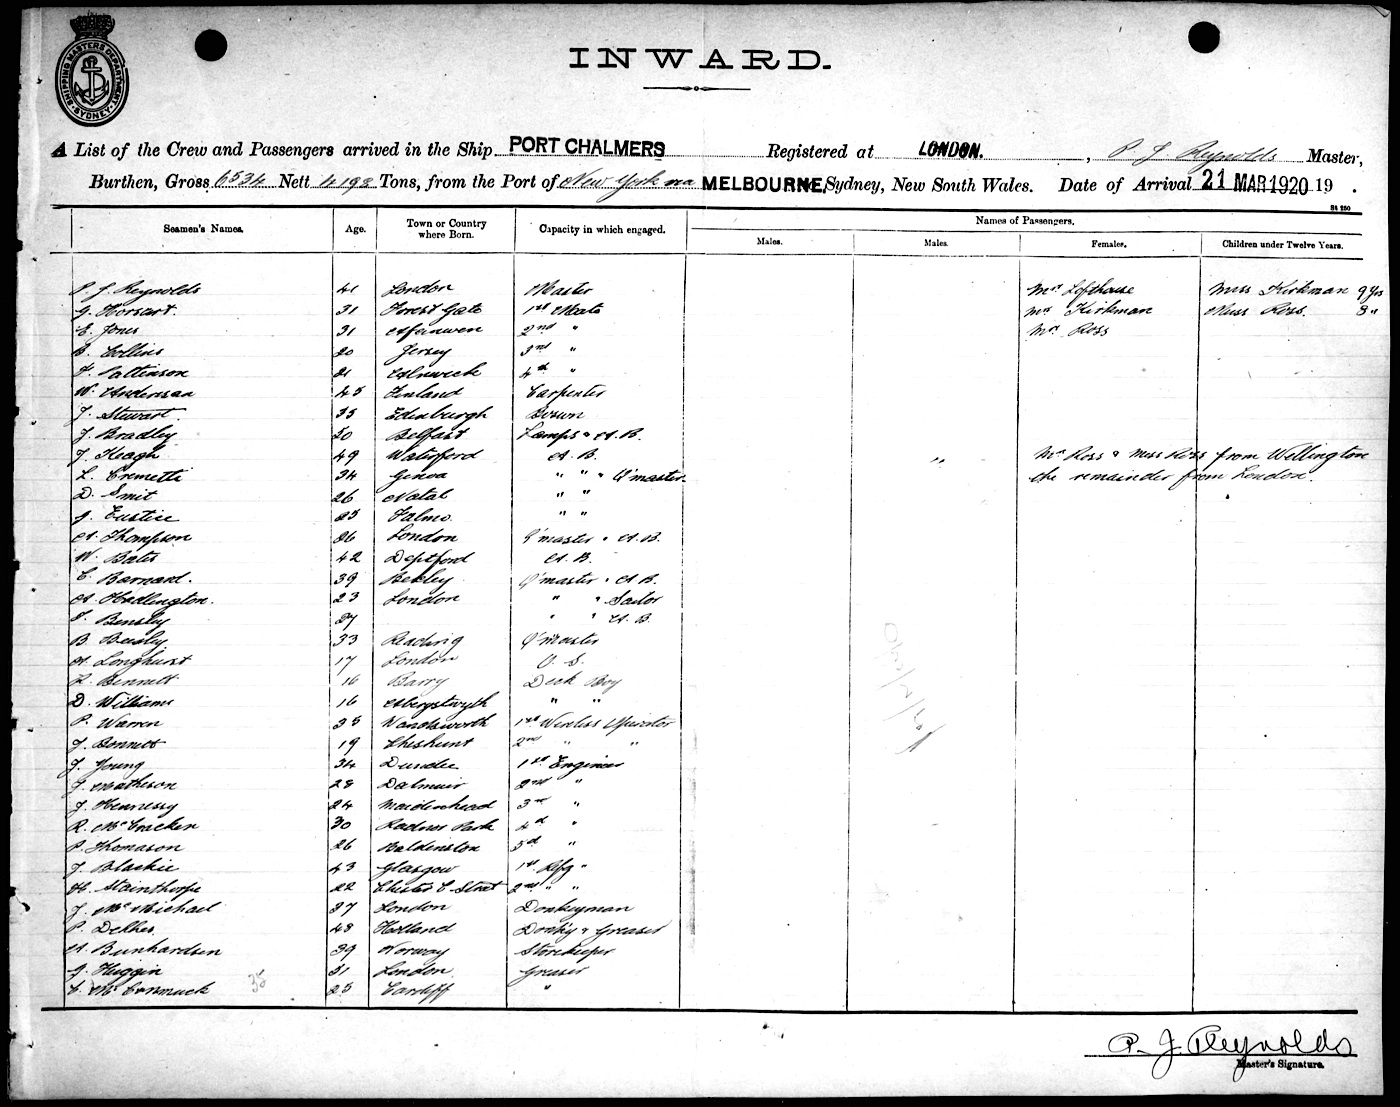 SHIPPING MASTERS DEPARTMENT SYDNEY
INWARD.
A List of the Crew and Passengers arrived in the Ship PORT CHALMERS Registered at LONDON. , P. J. Reynolds Master,
Burthen, Gross 6534 Nett 4198 Tons, from the Port of New York via MELBOURNE, Sydney, New South Wales. Date of Arrival 21 MAR 1920 19 .
St 250
Seamen's Names. Age. Town or Country where Born. Capacity in which engaged. Names of Passengers.
Males. Males. Females. Children under Twelve Years.
P. J. Reynolds 41 London Master Mrs Lofthouse Miss Kirkman 9 Yrs
G. Horsart. 31 Forest Gate 1st Mate Mrs Kirkman Miss Ross. 3 "
E. Jones 31 2nd " Mrs Ross
B. Collins 20 Jersey 3rd "
F. Pattinson 21 Alnwick 4th "
W. Anderson 45 Finland Carpenter
J. Stewart. 35 Edinburgh Bosun
J. Bradley 50 Belfast Lamps & A. B.
J. Keagh 49 Waterford A. B. " Mrs Ross & Miss Ross from Wellington
L. Cremetti 34 Genoa " " " Q'master the remainder from London.
D. Smit 26 Natal " "
J. Eustice 25 Falmo. " "
A. Thompson 26 London Q'master & A. B.
W. Bates 42 Deptford A. B.
C. Barnard. 39 Bexley Q'master & A B.
A. Hadlington. 23 London " " Sailor
T. Bensley 27 " " A. B.
B. Beesly 33 Reading Q'master
A. Longhurst 17 London O. S.
Bennett 16 Barry Deck Boy
D. Williams 16 Aberystwyth " "
P. Warren 35 Wandsworth 1st Wireless Operator
J. Bonnett 19 Cheshunt 2nd " "
J. Young 34 Dundee 1st Engineer
J. Matheson 28 Dalmuir 2nd "
J. Hennessy 24 Maidenhead 3rd "
R. McCracken 30 Radnor Park 4th "
P. Thomason 26 5th "
J. Blackie 43 Glasgow 1st Rfg "
H. Stainthorpe 22 Chester L Street 2nd " "
J. McMichael 37 London Donkeyman
P. Dekker 43 Holland Donky & Greaser
A. Bernhardsen 39 Norway Storekeeper
G. Huggin 31 London. Greaser
C. McCormack 35 25 Cardiff "
P. J. Reynolds
Master's Signature.